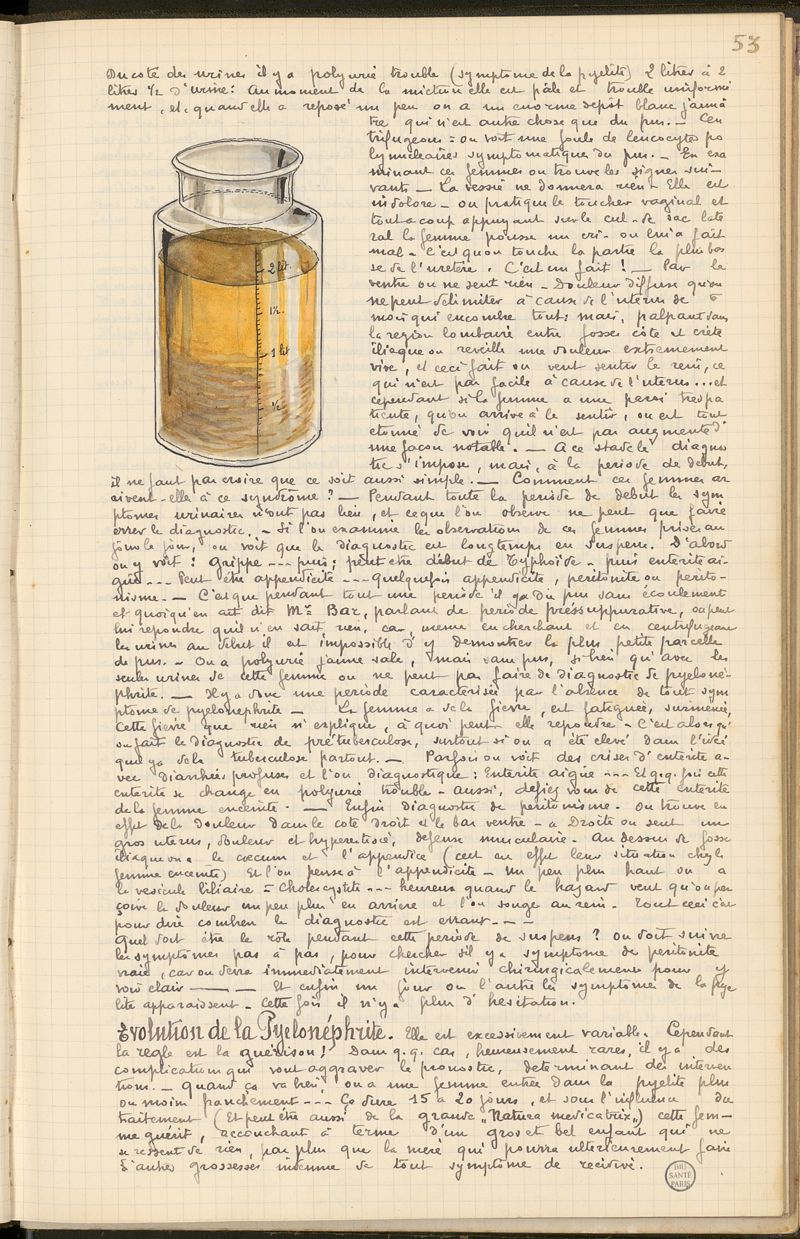 53
Du coté des urines il y a polyurie trouble (symptome de la pyelite) 2 litres à 2
litres ½ d'urine: Au moment de la miction elle est pâle et trouble uniformé
ment, et, quand elle a reposé un peu on a un enorme depôt blanc jaunâ
tre qui n'est autre chose que du pus. — Cen
trifugeons = on voit une foule de leucocytes po
lynucléaires symptomatiques du pus. — En exa
minant ces femmes on trouve les signes sui-
vants — La vessie ne donnera rien. Elle est
indolore — on pratique le toucher vaginal et
tout a coup appuyant sur le cul-de sac laté
ral la femme pousse un cri — on lui a fait
mal — C'est qu'on touche la partie la plus bas
se de l'uretère. C'est un fait! — Par le
ventre on ne sent rien — Douleur diffuse qu'on
ne peut délimiter à cause de l'uterus de 6
mois qui encombre tout: mais, palpant dans
la region lombaire entre fosses côte et crête
iliaque on reveille une douleur extremement
vive, et ceci fait on veut sentir le rein, ce
qui n'est pas facile à cause de l'uterus... et
cependant si la femme a une paroi très pa
tiente, qu'on arrive à le sentir, on est tout
etonné de voir qu'il n'est pas augmenté d'
une façon notable. — A ce stade le diagnos
tic s'impose, mais, à la periode de debut,
il ne faut pas croire que ce soit aussi simple. — Comment ces femmes ar
rivent-elle à ce syndrôme? — Pendant toute la periode de debut les sym
ptomes urinaires n'ont pas lieu, et ce que l'on observe ne peut que faire
errer le diagnostic. — Si l'on examine les observations de ces femmes prises au
jour le jour, on voit que le diagnostic est longtemps en suspens. D'abord
on y voit: Grippe --- puis: peut être début de Typhoïde — puis enterite ai-
gue --- Peut être appendicite --- quelquefois appendicite, peritonite ou perito-
nisme. — C'est que pendant tout une periode il y a du pus sans écoulement
et quoiqu'en ait dit Mr Bar, parlant de periode pressuppurative, on peut
lui repondre qu'il n'en sait rien, car, meme en cherchant et en centrifugeant
les urines au début il est impossible d'y demontrer la plus petite parcelle
de pus. — On a polyurie jaune sale, mais sans pus, si bien qu'avec les
seules urines de cette femme on ne peut pas faire de diagnostic de pyeloné-
phrite. — Il y a donc une periode caracterisée par l'absence de tout sym
ptome de pyelonephrite — La femme a de la fievre, est fatiguée, surmenée,
Cette fievre que rien n'explique, à quoi peut-elle repondre — C'est alors qu'
on fait le diagnostic de prétuberculose, surtout si on a été elevé dans l'idée
que y a de la tuberculose partout. — Parfois on voit des crises d'enterite a-
vec diarrhées profuses et l'on diagnostique: Enterite aigüe --- Et q.q. fois cette
enterite se change en polyurie trouble — aussi, defiez vous de cette enterite
de la femme enceinte. — Enfin diagnostic de peritonisme. on trouve en
effet de la douleur dans le coté droit et le bas ventre — a Droite on sent un
gros uterus, douleur et hyperesthésie, defense musculaire. Au dessus de fosse
iliaque on a le cœcum et l'appendice (c'est en effet leur situation chez la
femme enceinte) Et l'on pense à l'appendicite — Un peu plus haut on a
la vesicule biliaire = Cholecystite --- heureux quand le hazard veut qu'on per
çoive la douleur un peu plus en arriere et l'on songe au rein. Tout ceci c'est
pour dire combien le diagnostic est errant ---
Quel doit être le rôle pendant cette periode de suspens? on doit suivre
les symptômes pas à pas, pour chercher s'il y a symptome de peritonite
vraie, car on devra immédiatement intervenir chirurgicalement pour y
voir clair — — Et enfin un jour ou l'autre les symptômes de la pyé
lite apparaissent. Cette fois il n'y a plus d'hesitation.
Evolution de la Pyelonéphrite. Elle est excessivement variable. Cependant
la regle est la guérison! Dans q.q. cas, heureusement rares, il y a des
complications qui vont aggraver le pronostic, determinant des interven
tions. — Quand ça va bien, on a une femme entrée dans la pyelite plus
ou moins franchement --- Ça dure 15 à 20 jours, et sous l'influence du
traitement (Et peut être aussi de la grande „Natura medicatrix„) cette fem-
me guérit, accouchant à terme d'un gros et bel enfant qui ne
se ressent de rien, pas plus que la mère qui pourra ulterieurement faire
d'autres grossesses indemne de tout symptôme de recidive.
2 lit.
1½
1 lit
½
BIU
SANTÉ
PARIS